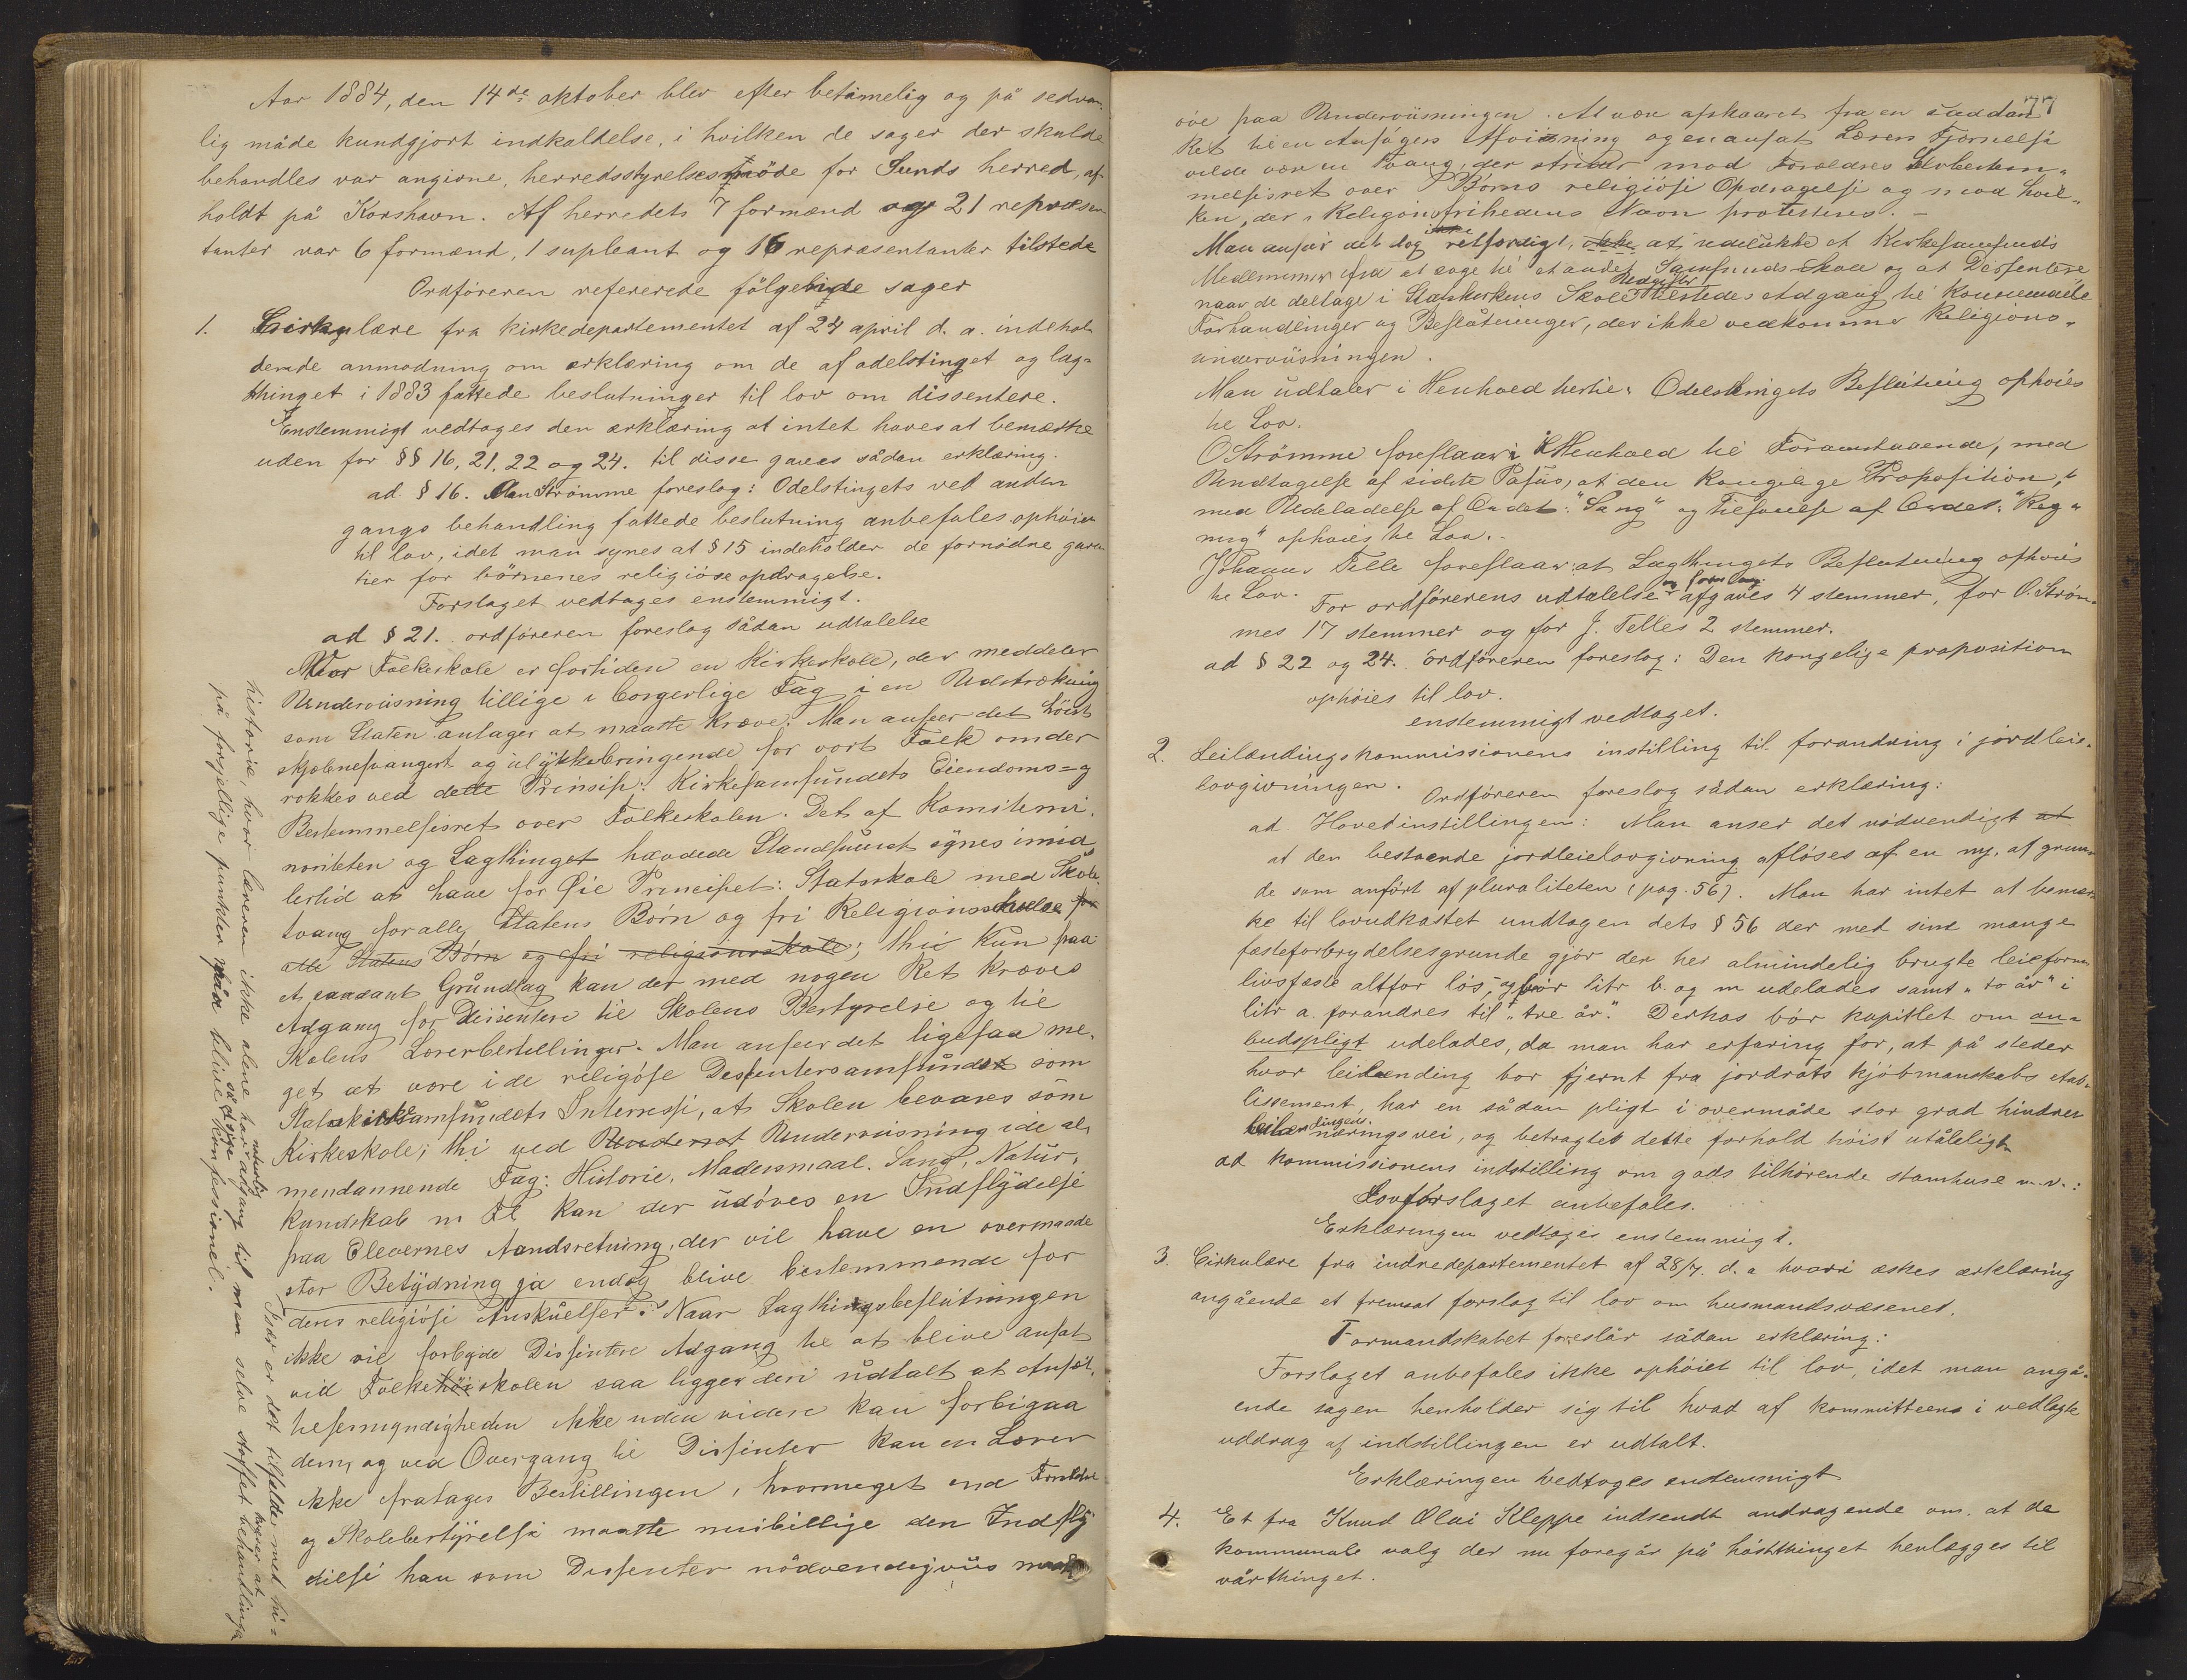 Aar 1884, den 14de oktober blev efter betimelig og på sedvan-
lig måde kundgjort indkaldelse, i hvilken de sager der skulde
behandles var angivne, herredsstyrelsesmöde for Sunds herred, af-
holdt på Korshavn. Af herredets 7 formænd og 21 repræsen
tanter var 6 formænd, 1 supleant og 16 repræsentanter tilstede
Ordföreren refererede fölgende sager
1. Cirkulære fra kirkedepartementet af 24 april d. a. indehol-
dende anmodning om erklæring om de af odelstinget og lag-
thinget i 1883 fattede beslutninger til lov om dissentere.
Enstemmigt vedtoges den erklæring at intet haves at bemærke
uden for §§ 16, 21, 22 og 24. til disse gaves sådan erklæring.
ad. § 16. Strömme foreslog: Odelstingets ved anden
gangs behandling fattede beslutning anbefales ophöiet
til lov, idet man synes at § 15 indeholder de fornödne garan-
tier for börnenes religiöse opdragelse.
Forslaget vedtages enstemmigt.
ad § 21. ordföreren foreslog sådan udtalelse
Vor Folkeskole er fortiden en Kirkeskole, der meddeler
Underviisning tillige i borgerlige Fag i en Udstrækning
som Staten antager at maatte kræve. Man anseer det höist
skjæbnesvangert og ulykkebringende for vort Folk om der
rokkes ved dette Prinsip: Kirkesamfundets Eiendoms- og
Bestemmelsesret over Folkeskolen. Det af Komitemi-
noriteten og Lagthinget hævdede Standpunct synes imid-
lertid at have for Øie Principet: Statsskole med Skole-
tvang for alle Statens Börn og fri Religionsskole for
alle Statens Börn og fri religionsskole; thi kun paa
et saadant Grundlag kan der med nogen Ret kræves
Adgang for Dissentere til Skolens Bestyrelse og til
Skolens Lærerbestillinger. Man anseer det ligesaa me-
get at være i de religiöse Dissentersamfundet som
Statskirkesamfundets Interesse, at Skolen bevares som
Kirkeskole; thi ved Underviisning i de al-
mendannende Fag: Historie, Modersmaal, Sang, Natur-
kundskab m fl kan der udöves en Indflydelse
paa Elevernes Aandsretning, der vil have en overmaade
stor Betydning ja endog blive bestemmende for
deres religiöse Anskuelser. Naar Lagthingsbeslutningen
ikke vil forbyde Dissentere Adgang til at blive ansat
ved Folkehöiskolen saa ligger deri udtalt at Ansæt-
telsesmyndigheden ikke uden videre kan forbigaa
dem, og ved Overgang til Dissenter kan en Lærer
ikke fratages Bestillingen, hvormeget end Forældre
og Skolebestyrelse maatte misbillige den Indfly
delse han som Dissenter nödvendigviis maatte
Især er det tilfælde med hi-
historie, hvor læreren ikke alene har naturlig adgang til men selve stoffet kræver at behandlinga
på forsjellige punkter må blive sådanne konfessionel.
77
öve paa Underviisningen. At være afskaaret fra en saadan
Ret til en Ansögers Afviisning og en ansat Lærers Fjernelse
vilde være en Tvang, der strider mod Forældres Bestem-
melsesret over Börns religiöse Opdragelse og mod hvil-
ken, der i Religionsfrihedens Navn protesteres. -
Man anser det dog ikke retfærdigt, ikke at udelukke et Kirkesamfunds
Medlemmer fra at söge til et andet Samfunds Skole og at Dissentere
naar de deltage i Statskirkens Skole Udgifter tilstedes Adgang til kommunale
Forhandlinger og Beslutninger, der ikke vedkommer Religions-
underviisningen.
Man udtaler i Henhold hertil: Odelsthingets Beslutning ophöies
til Lov.
O Strömme foreslaar i Henhold til Foranstaaende, med
Undtagelse af sidste Pasus, at den kongelige Proposition,
med Udeladelse af Ordet "Sang" og Tilföielse af Ordet "Reg-
ning" ophöies til Lov.
Johannes Telle foreslaar at Lagthingets Beslutning ophöies
til Lov. For ordförerens udtalelse og forslag afgaves 4 stemmer, for O. Ström-
mes 17 stemmer og for J. Telles 2 stemmer.
ad § 22 og 24. ordföreren foreslog: Den kongelige proposition
ophöies til lov.
enstemmigt vedtaget.
2. Leilændingskommissionens instilling til forandring i jordleie-
lovgivningen. Ordföreren foreslog sådan erklæring:
ad. Hovedinstillingen: Man anser det nödvendigt at
at den bestaaende jordleielovgivning aflöses af en ny, af grun-
de som anfört af pluraliteten (pag. 56). Man har intet at bemær-
ke til lovudkastet undtagen dets § 56 der med sine mange
fæsteforbrydelsesgrunde gjör den her almindelig brugte leieform
livsfæste altfor lös, og bör litr b. og m udelades samt "to år" i
litr a. forandres til "tre år". Derhos bör kapitlet om an-
budspligt udelades, da man har erfaring for, at på steder
hvor leilænding bor fjernt fra jordrots kjöbmanskabs etab-
lissement, har en sådan pligt i overmåde stor grad hindret
leilændingens næringsvei, og betragtes dette forhold höist utåleligt
ad kommissionens indstilling om gods tilhörende stamhuse m.v.:
Lovforslaget anbefales.
Erklæringen vedtoges enstemmigt.
3. Cirkulære fra indredepartementet af 28/7. d. a hvori æskes erklæring
angående et fremsat forslag til lov om husmandsvæsenet.
Formandskabet foreslår sådan erklæring:
Forslaget anbefales ikke ophöiet til lov, idet man angå-
ende sagen henholder sig til hvad af kommitteens i vedlagte
uddrag af indstillingen er udtalt.
Erklæringen vedtoges enstemmigt
4. Et fra Knud Olai Kleppe indsendt andragende om, at de
kommunale valg der nu foregår på höstthinget henlægges til
vårthinget.